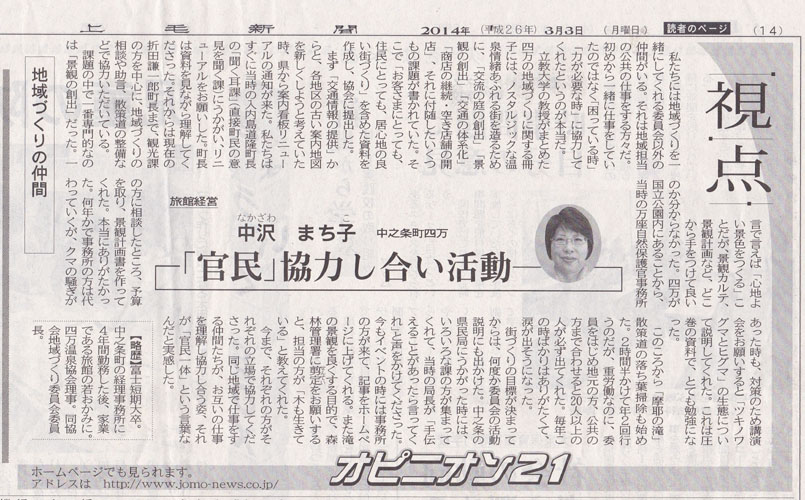 上毛新聞 2014年（平成26年）3月3日（月曜日） 読者のページ （14）
視点
私たちには地域づくりを一
緒にしてくれる委員会以外の
仲間がいる。それは地域担当
の公共の仕事をする方々だ。
初めから一緒に仕事をしてい
たのではなく「困っている時」
「力が必要な時」に協力して
くれたというのが本当だ。
立教大学の教授がまとめた
四万の地域づくりに関する冊
子には、ノスタルジックな温
泉情緒あふれる街を造るため
に、「交流の庭の創出」「景
観の創出」「交通の体系化」
「商店の継続・空き店舗の開
店」、それに付随したいくつ
もの課題が書かれていた。そ
こで「お客さまにとっても、
住民にとっても、居心地の良
い街づくり」を含めた資料を
作成し、協会に提出した。
まず「交通情報の提供」か
らと、各地区の古い案内地図
を新しくしようと考えていた
時、県から案内看板リニュー
アルの通知が来た。私たちは
すぐに当時の入内島道隆町長
の「聞く耳課」（直接町民の意
見を聞く課）にうかがい、リニ
ューアルをお願いした。町長
は資料を見ながら理解してく
ださった。それからは現在の
折田謙一郎町長まで、観光課
の方を中心に、地域づくりの
相談や助言、散策道の整備な
どで協力いただいている。
課題の中で一番専門的なの
は「景観の創出」だった。一
地域づくりの仲間
言で言えば「心地よ
い景色をつくる」こ
とだが、景観カルテ、
景観計画など、どこ
から手をつけて良い
のか分からなかった。四万が
国立公園内にあることから、
当時の万座自然保護官事務所
「官民」協力し合い活動
中之条町四万
なかざわ　こ
中沢　まち子
旅館経営
の方に相談したところ、予算
を取り、景観計画書を作って
くれた。本当にありがたかっ
た。何年かで事務所の方は代
わっていくが、クマの騒ぎが
あった時も、対策のため講演
会をお願いすると「ツキノワ
グマとヒグマ」の生態につい
て説明してくれた。これは圧
巻の資料で、とても勉強にな
った。
このころから「摩耶の滝」
散策道の落ち葉掃除も始め
た。２時間半かけて年２回行
うのだが、重労働なのに、委
員をはじめ地元の方、公共の
方まで合わせると20人以上の
人が必ず出てくれた。毎年こ
の時ばかりはありがたくて、
涙が出そうになった。
街づくりの目標が決まって
からは、何度か委員会の活動
説明にも出かけた。中之条の
県民局にうかがった時には、
いろいろな課の方が集まって
くれて、当時の局長が「手伝
えることがあったら言ってく
れ」と声をかけてくださった。
今もイベントの時には事務所
の方が来て、記事をホームペ
ージに上げてくれる。また滝
の景観を良くする目的で、森
林管理署に剪定をお願いする
と、担当の方が「木も生きて
いる」と教えてくれた。
今まで、それぞれの方がそ
れぞれの立場で協力してくだ
さった。同じ地域で仕事をす
る仲間たちが、お互いの仕事
を理解し協力し合う姿、それ
が「官民一体」という言葉な
んだと実感した。
【略歴】富士短期大卒。
中之条町の経理事務所に
４年間勤務した後、家業
である旅館の若おかみに。
四万温泉協会理事。同協
会地域づくり委員会委員
長。
オピニオン21
ホームページでも見られます。
アドレスは　http://www.jomo-news.co.jp/